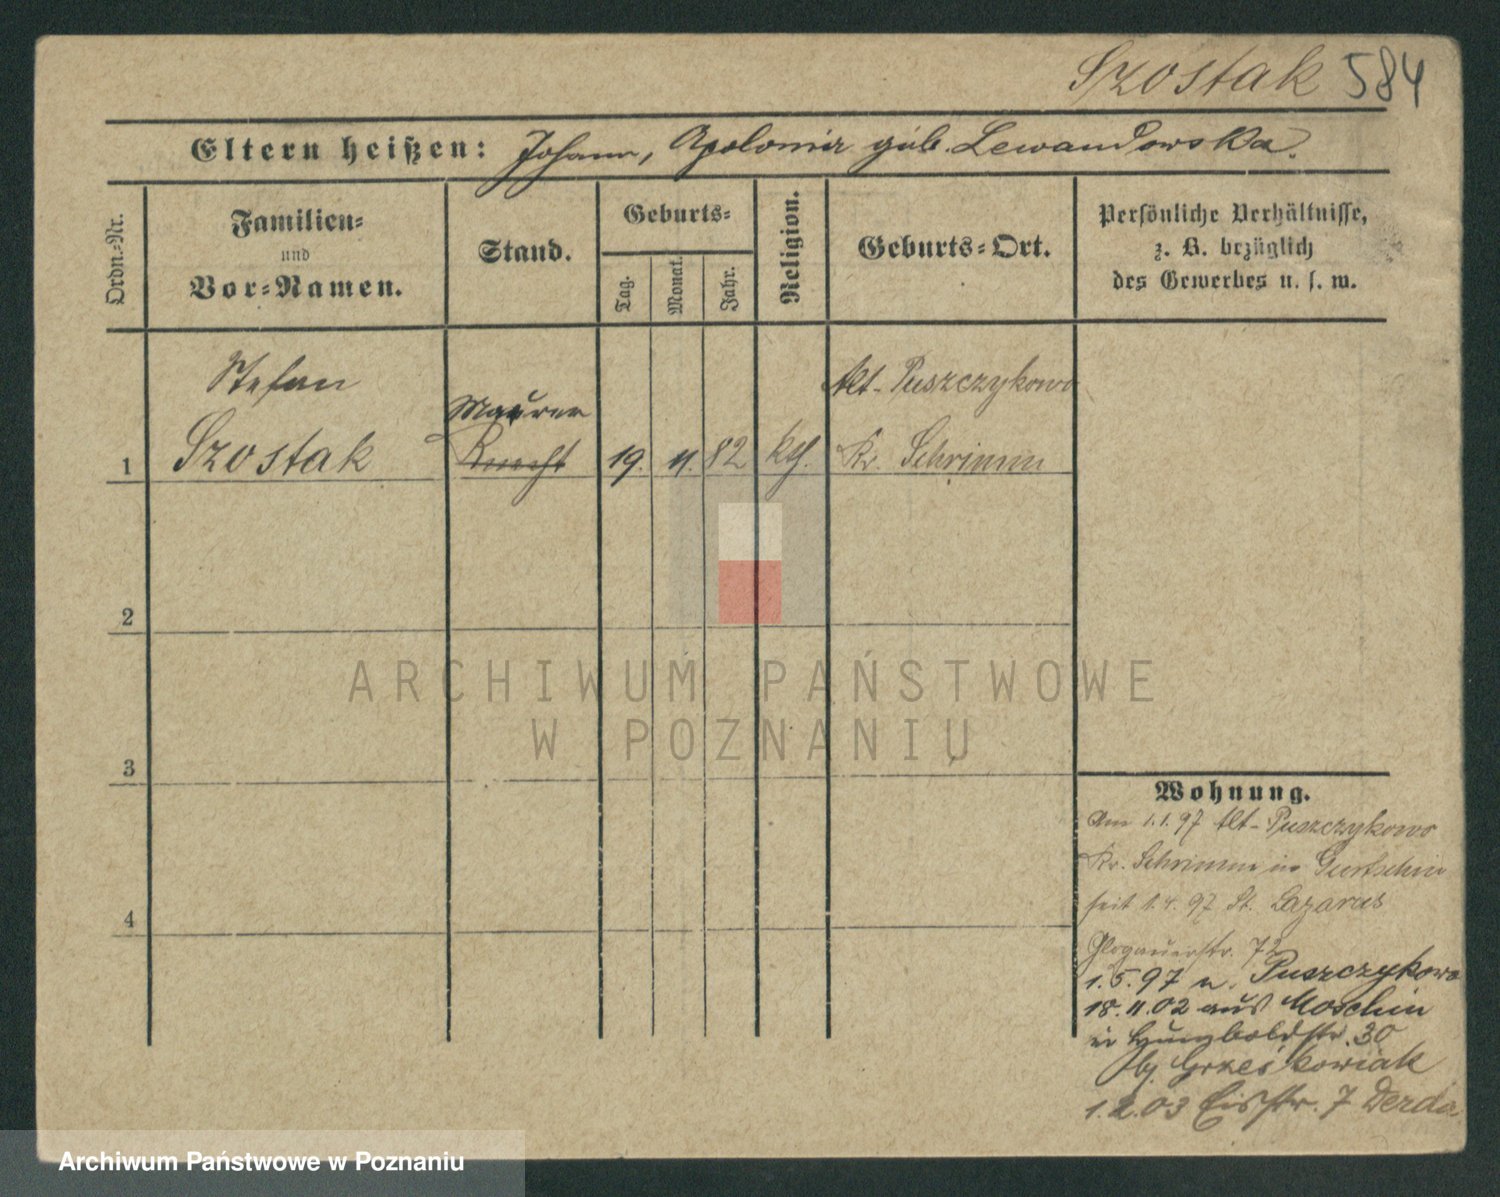 Szostak 584
Eltern heißen: Johann, Apolonia geb. Lewandowska.
Ordn.-Nr.
Familien-
und
Vor-Namen.
Stand.
Geburts-
Tag.
Monat.
Jahr.
Religion.
Geburts-Ort.
Persönliche Verhältnisse,
z. B. bezüglich
des Gewerbes u. s. w.
Stefan
Szostak
Maurer
Knecht
1
19. 11. 82 kth.
Alt-Puszczykowo
Kr. Schrimm
2
3
4
ARCHIWUM PAŃSTWOWE
W POZNANIU
Wohnung.
Am 1.1.97 Alt-Puszczykowo
Kr. Schrimm in Gurtschin
seit 1.4.97 St. Lazarus
Glogauerstr. 72
1.5.97 n. Puszczykowo
18.11.02 aus Moschin
in Humboldstr. 30
bj. Grześkowiak
1.2.03 Eisstr. 7 Derda
Archiwum Państwowe w Poznaniu